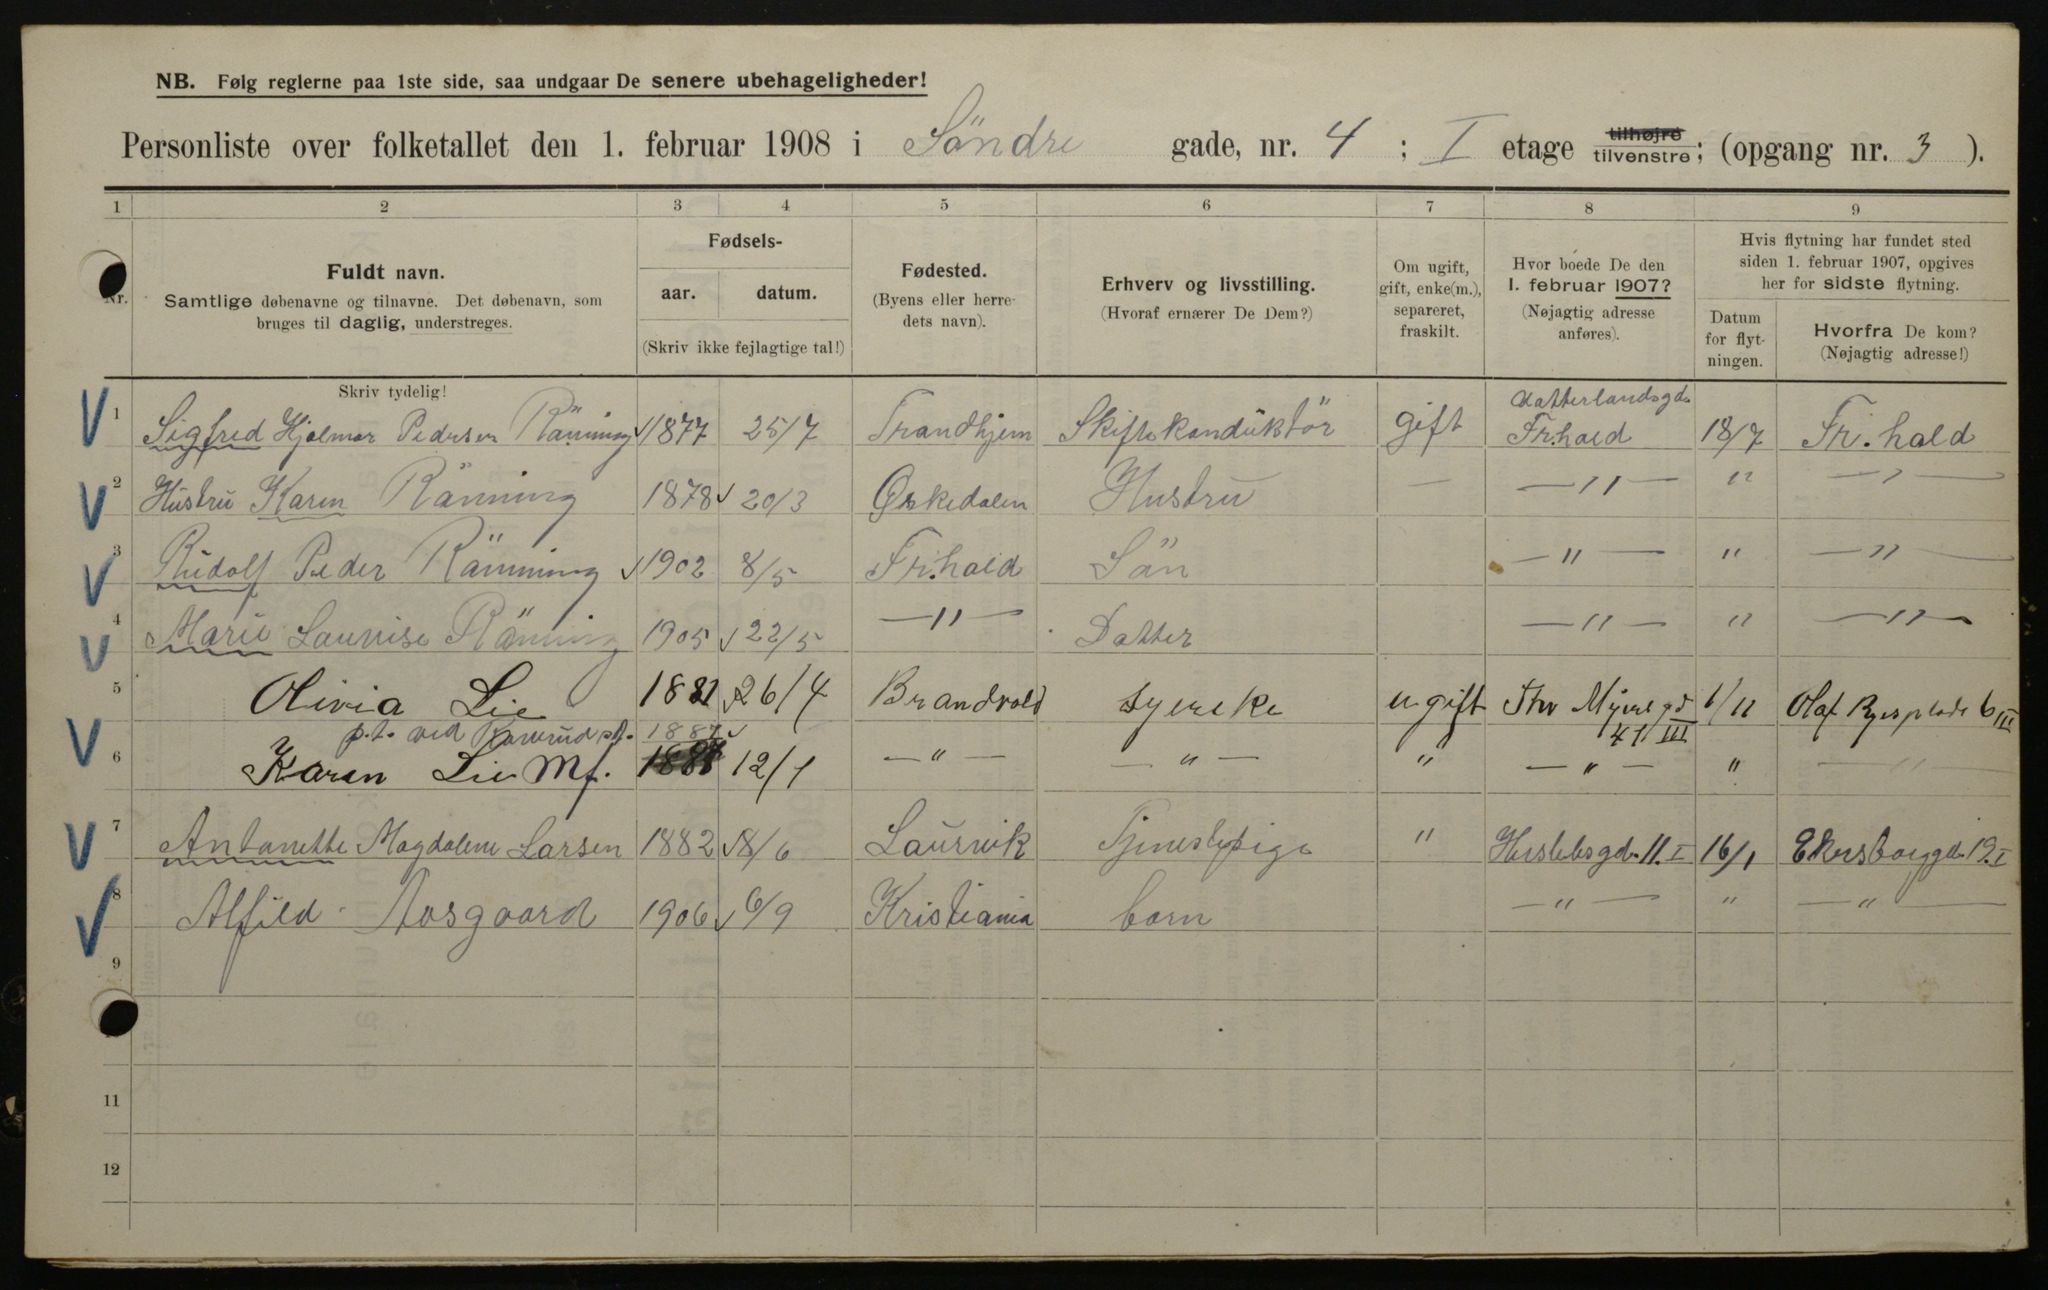 NB. Følg reglerne paa 1ste side, saa undgaar De senere ubehageligheder!
Personliste over folketallet den 1. februar 1908 i Söndre gade, nr. 4 ; I etage tilhøjre tilvenstre; (opgang nr. 3 ).
1 2 3 4 5 6 7 8 9
Nr.
Fuldt navn.
Samtlige døbenavne og tilnavne. Det døbenavn, som
bruges til daglig, understreges.
Skriv tydelig!
Fødsels-
aar. datum.
(Skriv ikke fejlagtige tal!)
Fødested.
(Byens eller herre-
dets navn).
Erhverv og livsstilling.
(Hvoraf ernærer De Dem?)
Om ugift,
gift, enke(m.),
separeret,
fraskilt.
Hvor boede De den
1. februar 1907?
(Nøjagtig adresse
anføres).
Hvis flytning har fundet sted
siden 1. februar 1907, opgives
her for sidste flytning.
Datum
for flyt-
ningen.
Hvorfra De kom?
(Nøjagtig adresse!)
1 Sigfred Hjalmar Pedersen Rönning 1877 25/7 Trondhjem Skiftekonduktör gift Fr.hald 18/7 Fr.hald
2 Hustru Karen Rönning 1878 20/3 Hustru — —"— " —"—
3 Rudolf Peder Rönning 1902 8/5 Fr.hald Sön —"— " —"—
4 Marie Lauvise Rönning 1905 22/5 —"— Datter —"— " —"—
5 Olivia Lie 26/4 Brandvold syerske ugift Thv Myers gd 41 III 1/11 Olaf Ryes plads 6 III
p.t. ved 1887
6 Karen Lie Mf. 12/1 —"— —"— " —"— " —"—
7 Antonette Magdalene Larsen 1882 8/6 Laurvik Tjenestepige " 11. I 16/1 Ekersberggd. 19. I
8 Alfild Aasgaard 1906 6/9 Kristiania barn —"— " —"—
9
11
12